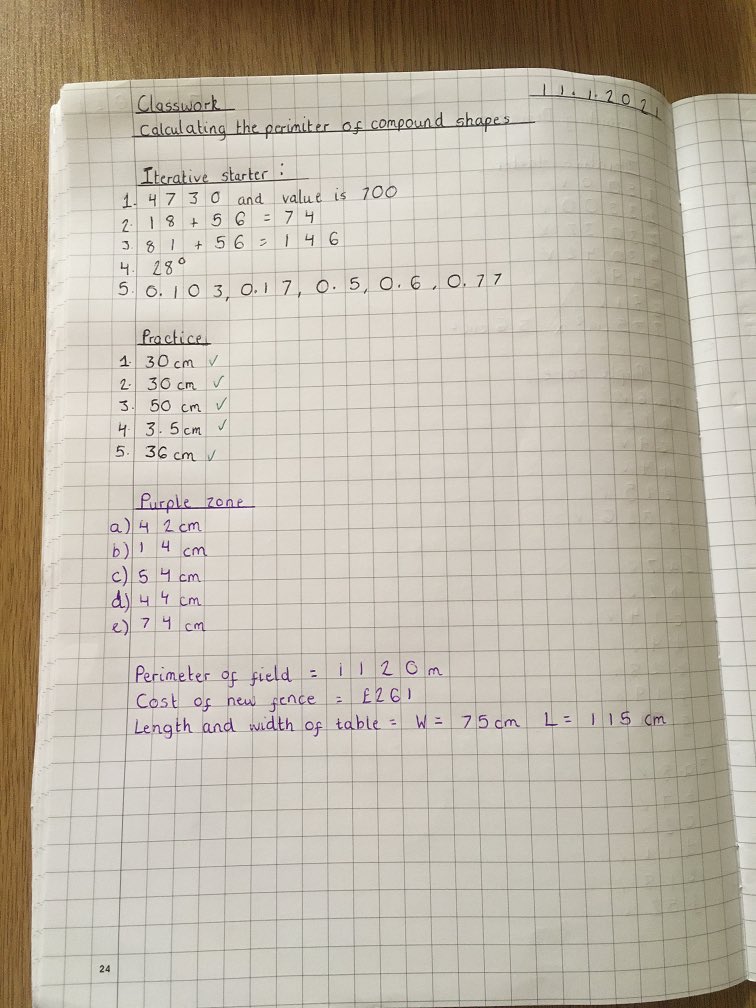 11.1.2021
Classwork
Calculating the perimiter of compound shapes
Iterative starter :
1. 4730 and value is 700
2. 18 + 56 = 74
3. 81 + 56 = 146
4. 28°
5. 0.103, 0.17, 0.5, 0.6, 0.77
Practice
1. 30 cm ✓
2. 30 cm ✓
3. 50 cm ✓
4. 3.5cm ✓
5. 36 cm ✓
Purple zone
a) 42cm
b) 14 cm
c) 54 cm
d) 44 cm
e) 74 cm
Perimeter of field = 1120m
Cost of new fence = £261
Length and width of table = W = 75cm L = 115 cm
24